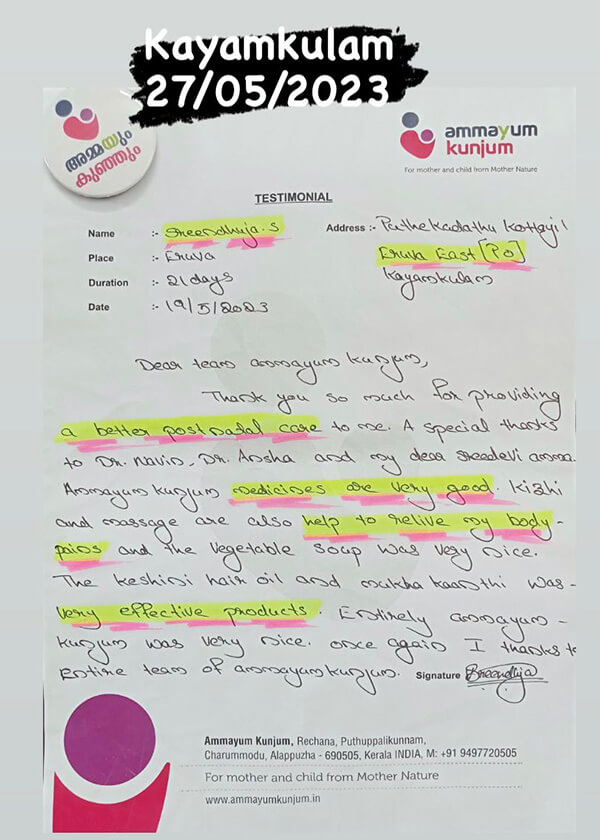 Kayamkulam
27/05/2023
അമ്മയും
കുഞ്ഞും
ammayum
kunjum
For mother and child from Mother Nature
TESTIMONIAL
Name :- Sreendhuja.S
Place :- Eruva
Duration :- 21 days
Date :- 19/5/2023
Address :- Puthe Kadathu Kottayil
Eruva East [PO]
Kayamkulam
Dear team ammayum kunjum,
Thank you so much for providing
a better postnadal care to me. A special thanks
to Dr. Navin, Dr. Ansha and my dear sreedevi amma.
Ammayum kunjum medicines are very good. Kizhi
and massage are also help to relive my body-
pains and the vegetable soup was very nice.
The keshini hair oil and mukha kaanthi was-
very effective products. Entirely ammayum-
kunjum was very nice. once again I thanks to
Entire team of ammayum kunjum. Signature Sreendhja
Ammayum Kunjum, Rechana, Puthuppalikunnam,
Charummodu, Alappuzha - 690505, Kerala INDIA, M: +91 9497720505
For mother and child from Mother Nature
www.ammayumkunjum.in